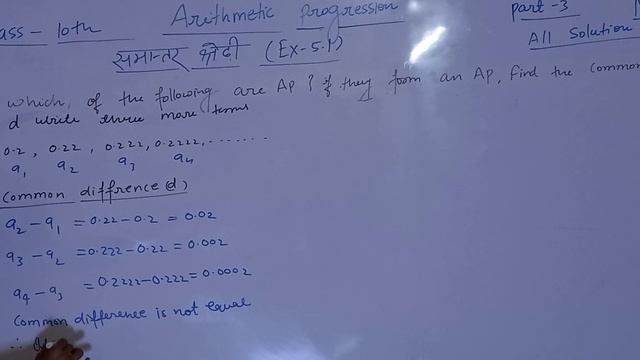 ass - 10th Arithmetic progression part-3
समान्तर श्रेढी (Ex-5.1) All Solution
which, of the following are AP ? if they form an AP, find the common
d write three more terms
0.2, 0.22, 0.222, 0.2222, .......
a1 a2 a3 a4
Common diffrence(d)
a2 - a1 = 0.22-0.2 = 0.02
a3 - a2 = 0.222-0.22 = 0.002
a4 - a3 = 0.2222-0.222 = 0.0002
Common difference is not equal
∴